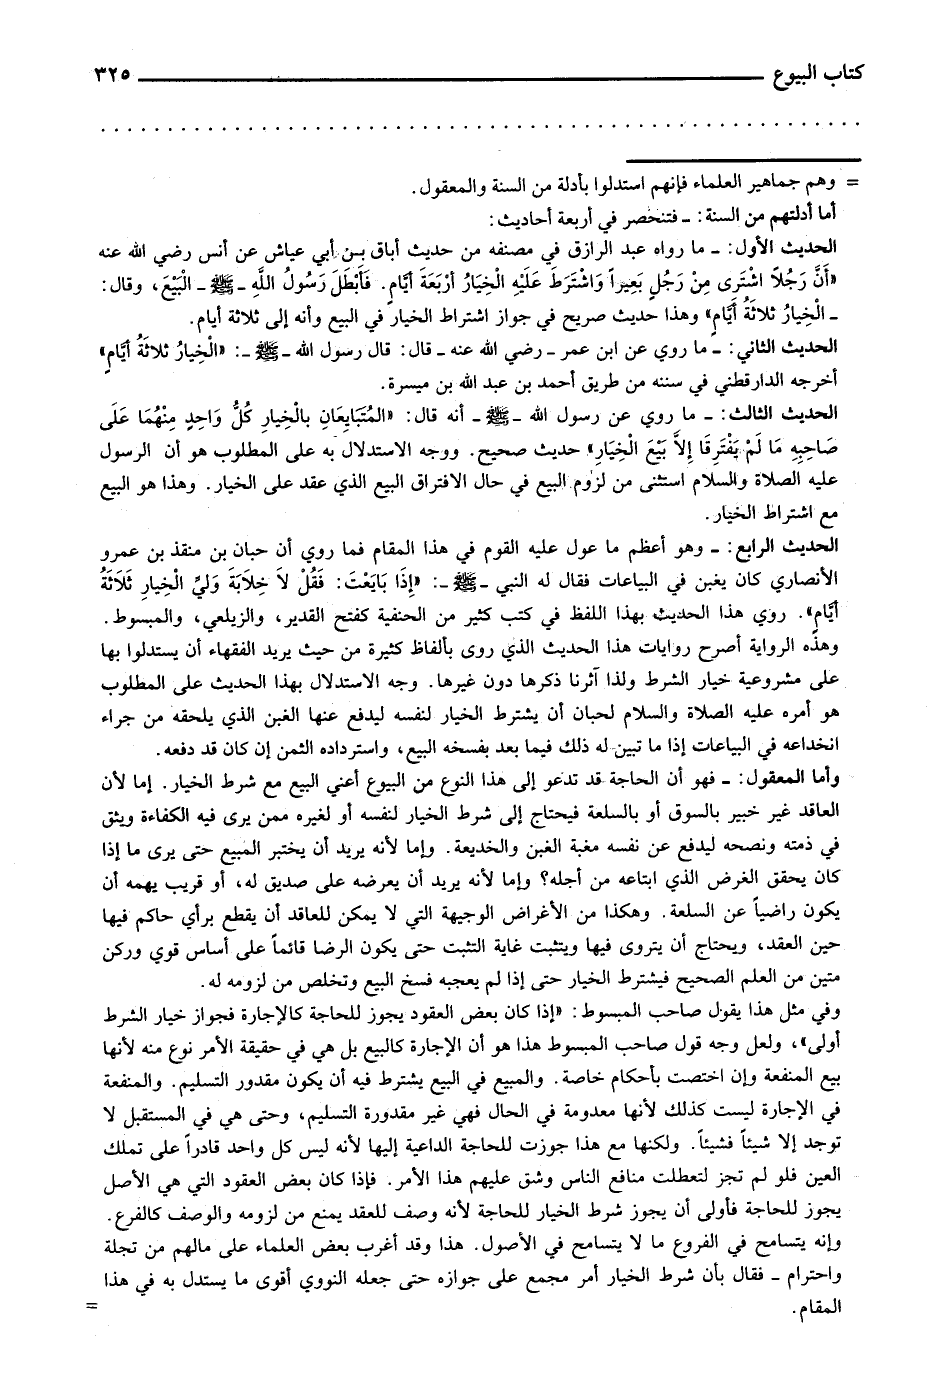 كتاب البيوع ــــــــــــــــــــ ٣٢٥
. . . . . . . . . . . . . . . . . . . . . . . . . . . . . . . . . . . . . . . . . . . . . . . . . . . .
= وهم جماهير العلماء فإنهم استدلوا بأدلة من السنة والمعقول.
أما أدلتهم من السنة: ـ فتنحصر في أربعة أحاديث:
الحديث الأول: ـ ما رواه عبد الرازق في مصنفه من حديث أباق بن أبي عياش عن أنس رضي الله عنه
«أَنَّ رَجُلاً اشْتَرى مِنْ رَجُلٍ بَعِيراً وَاشْتَرَطَ عَلَيْهِ الْخِيَارُ أَرْبَعَةَ أَيَّامٍ. فَأَبْطَلَ رَسُولُ اللَّهِ ـ ﷺ ـ الْبَيْعَ، وقال:
ـ الْخِيَارُ ثَلاثَةُ أَيَّامٍ» وهذا حديث صريح في جواز اشتراط الخيار في البيع وأنه إلى ثلاثة أيام.
الحديث الثاني: ـ ما روي عن ابن عمر ـ رضي الله عنه ـ قال: قال رسول الله ـ ﷺ ـ: «الْخِيَارُ ثَلاثَةُ أَيَّامٍ»
أخرجه الدارقطني في سننه من طريق أحمد بن عبد الله بن ميسرة.
الحديث الثالث: ـ ما روي عن رسول الله ـ ﷺ ـ أنه قال: «الْمُتَبَايِعَانِ بِالْخِيَارِ كُلُّ وَاحِدٍ مِنْهُمَا عَلَى
صَاحِبِهِ مَا لَمْ يَفْتَرِقَا إِلاَّ بَيْعَ الْخِيَارِ» حديث صحيح. ووجه الاستدلال به على المطلوب هو أن الرسول
عليه الصلاة والسلام استثنى من لزوم البيع في حال الافتراق البيع الذي عقد على الخيار. وهذا هو البيع
مع اشتراط الخيار.
الحديث الرابع: ـ وهو أعظم ما عول عليه القوم في هذا المقام فما روي أن حبان بن منقذ بن عمرو
الأنصاري كان يغبن في البياعات فقال له النبي ـ ﷺ ـ: «إِذَا بَايَعْتَ: فَقُلْ لاَ خِلاَبَةَ وَلِيُّ الْخِيَارِ ثَلاَثَةُ
أَيَّامٍ». روي هذا الحديث بهذا اللفظ في كتب كثير من الحنفية كفتح القدير، والزيلعي، والمبسوط.
وهذه الرواية أصرح روايات هذا الحديث الذي روى بألفاظ كثيرة من حيث يريد الفقهاء أن يستدلوا بها
على مشروعية خيار الشرط ولذا آثرنا ذكرها دون غيرها. وجه الاستدلال بهذا الحديث على المطلوب
هو أمره عليه الصلاة والسلام لحبان أن يشترط الخيار لنفسه ليدفع عنها الغبن الذي يلحقه من جراء
انخداعه في البياعات إذا ما تبين له ذلك فيما بعد بفسخه البيع، واسترداده الثمن إن كان قد دفعه.
وأما المعقول: ـ فهو أن الحاجة قد تدعو إلى هذا النوع من البيوع أعني البيع مع شرط الخيار. إما لأن
العاقد غير خبير بالسوق أو بالسلعة فيحتاج إلى شرط الخيار لنفسه أو لغيره ممن يرى فيه الكفاءة ويثق
في ذمته ونصحه ليدفع عن نفسه مغبة الغبن والخديعة. وإما لأنه يريد أن يختبر المبيع حتى يرى ما إذا
كان يحقق الغرض الذي ابتاعه من أجله؟ وإما لأنه يريد أن يعرضه على صديق له، أو قريب يهمه أن
يكون راضياً عن السلعة. وهكذا من الأغراض الوجيهة التي لا يمكن للعاقد أن يقطع برأي حاكم فيها
حين العقد، ويحتاج أن يتروى فيها ويتثبت غاية التثبت حتى يكون الرضا قائماً على أساس قوي وركن
متين من العلم الصحيح فيشترط الخيار حتى إذا لم يعجبه فسخ البيع وتخلص من لزومه له.
وفي مثل هذا يقول صاحب المبسوط: «إذا كان بعض العقود يجوز للحاجة كالإجارة فجواز خيار الشرط
أولى»، ولعل وجه قول صاحب المبسوط هذا هو أن الإجارة كالبيع بل هي في حقيقة الأمر نوع منه لأنها
بيع المنفعة وإن اختصت بأحكام خاصة. والمبيع في البيع يشترط فيه أن يكون مقدور التسليم. والمنفعة
في الإجارة ليست كذلك لأنها معدومة في الحال فهي غير مقدورة التسليم، وحتى هي في المستقبل لا
توجد إلا شيئاً فشيئاً. ولكنها مع هذا جوزت للحاجة الداعية إليها لأنه ليس كل واحد قادراً على تملك
العين فلو لم تجز لتعطلت منافع الناس وشق عليهم هذا الأمر. فإذا كان بعض العقود التي هي الأصل
يجوز للحاجة فأولى أن يجوز شرط الخيار للحاجة لأنه وصف للعقد يمنع من لزومه والوصف كالفرع.
وإنه يتسامح في الفروع ما لا يتسامح في الأصول. هذا وقد أغرب بعض العلماء على مالهم من تجلة
واحترام ـ فقال بأن شرط الخيار أمر مجمع على جوازه حتى جعله النووي أقوى ما يستدل به في هذا
المقام. =